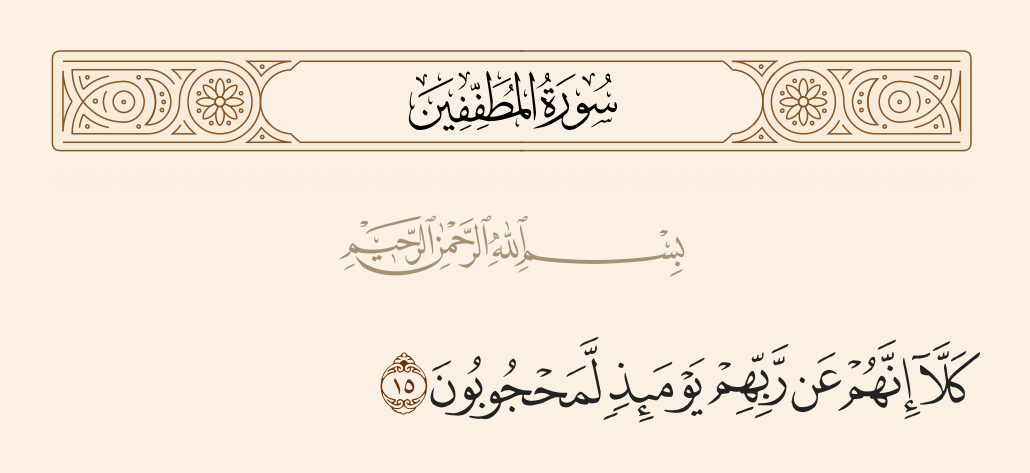 سُورَةُ المُطَفِّفِينَ
بِسْمِ ٱللَّهِ ٱلرَّحْمَٰنِ ٱلرَّحِيمِ
كَلَّآ إِنَّهُمْ عَن رَّبِّهِمْ يَوْمَئِذٍ لَّمَحْجُوبُونَ ١٥